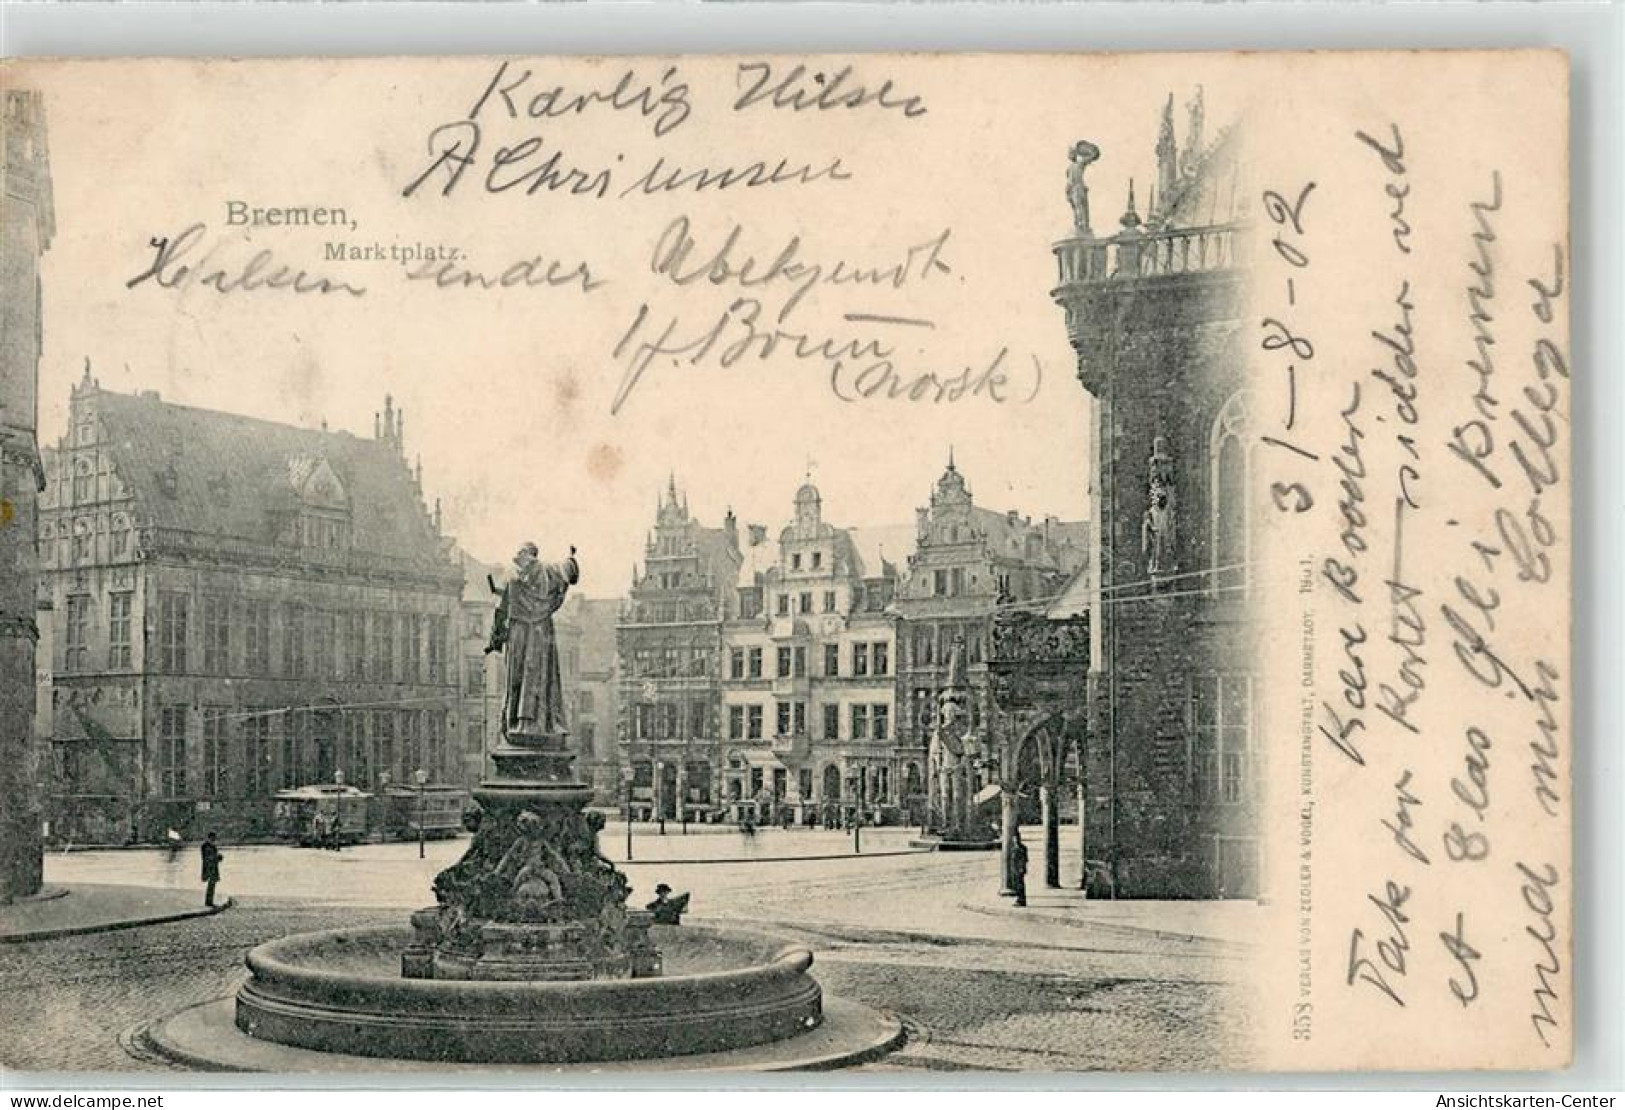 Kærlig Hilsen
A Christensen
Bremen,
Marktplatz.
Hilsen sender Ubekjendt
H. Bruun
(Norsk)
31-8-02
Kære Broder
Tak for Kortet sidder ved
et Glas Øl i Bremen
med min Collega
358 VERLAG VON ZEDLER & VOGEL, KUNSTANSTALT, DARMSTADT. 1901.
Ansichtskarten-Center.com
Ansichtskarten-Center